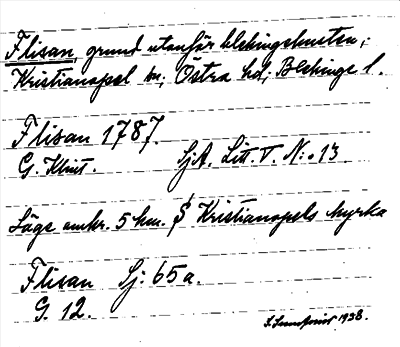 Flisan, grund utanför blekingekusten;
Kristianopel sn; Östra hd; Blekinge l.
Flisan 1787.
G. Klint. SjA. Litt. V. N:o 13
Läge omkr. 5 km. S Kristianopels kyrka
Flisan Sj: 65a.
G. 12.
1938.